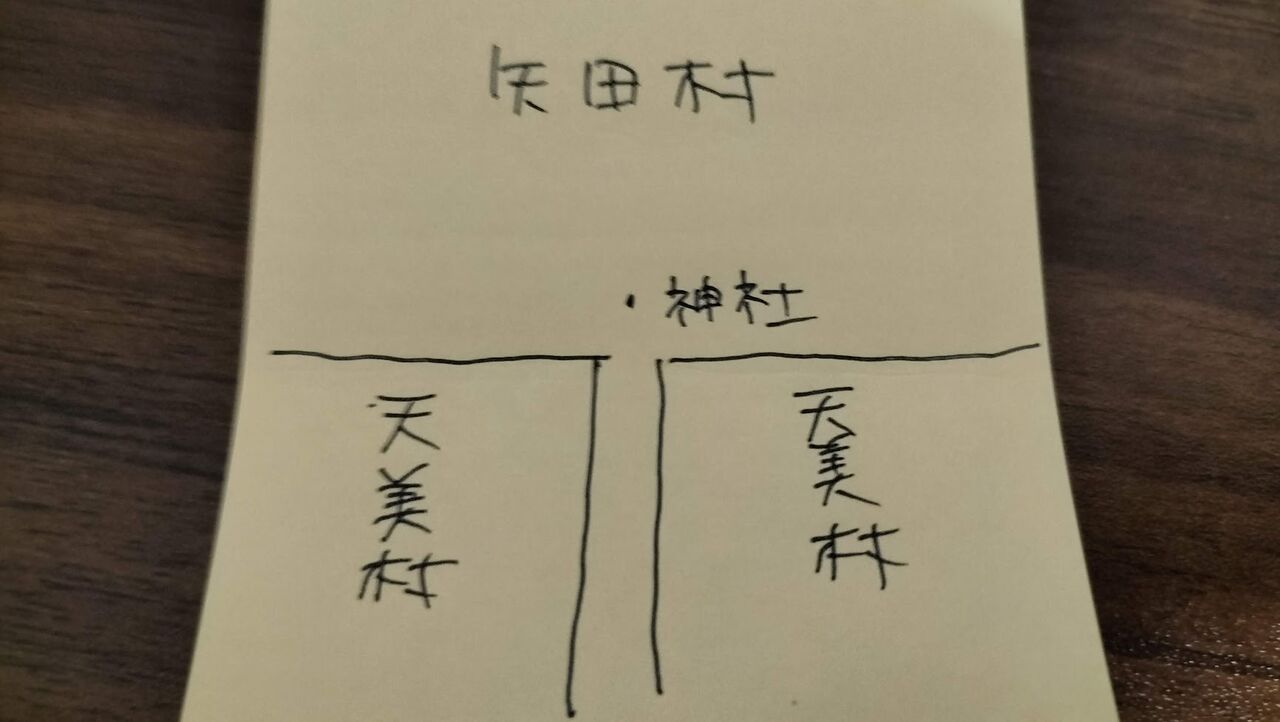 矢田村
・神社
天美村
天美村